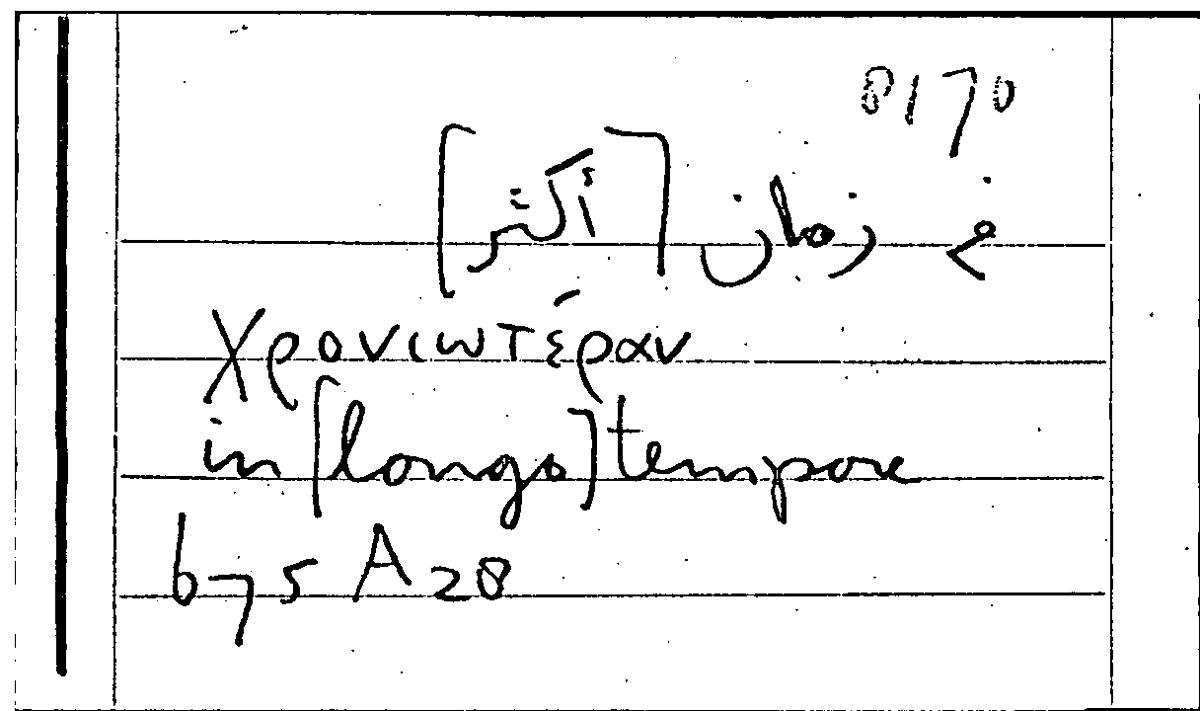 8170
في زمان [أكثر]
χρονιωτέραν
in [longo] tempore
675 A 28